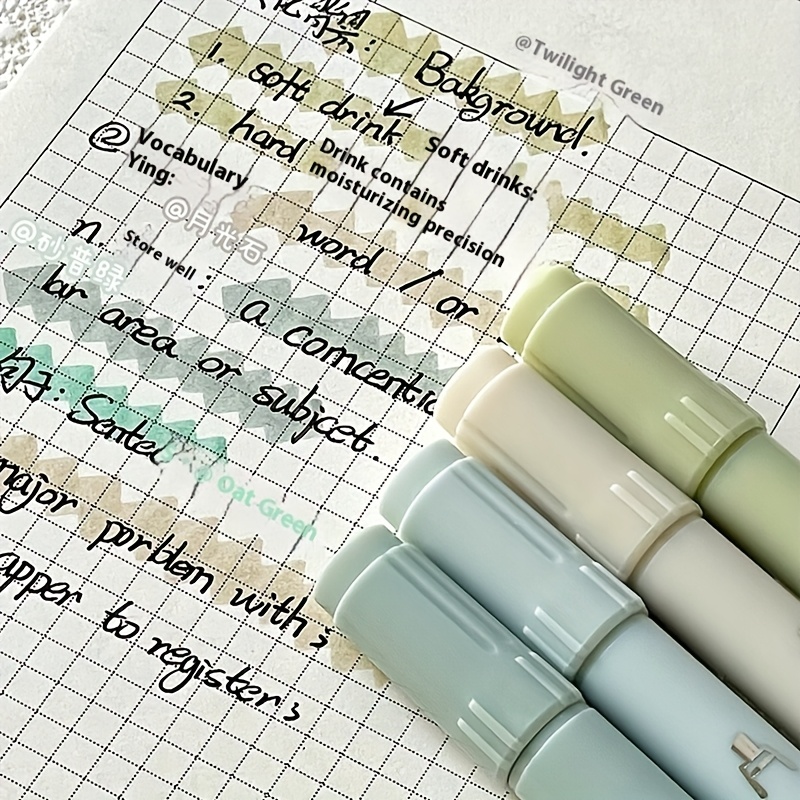 @Twilight Green
背景: Bakground.
1. soft drink
2. hard
Soft drinks:
Drink contains
moisturizing precision
② Vocabulary
Ying:
@月光石
word / or
@砂普绿
n. Store well :
a comcentic
lar area or subjcet.
句子: Sente
@ Oat Green
major porblem with
apper to register